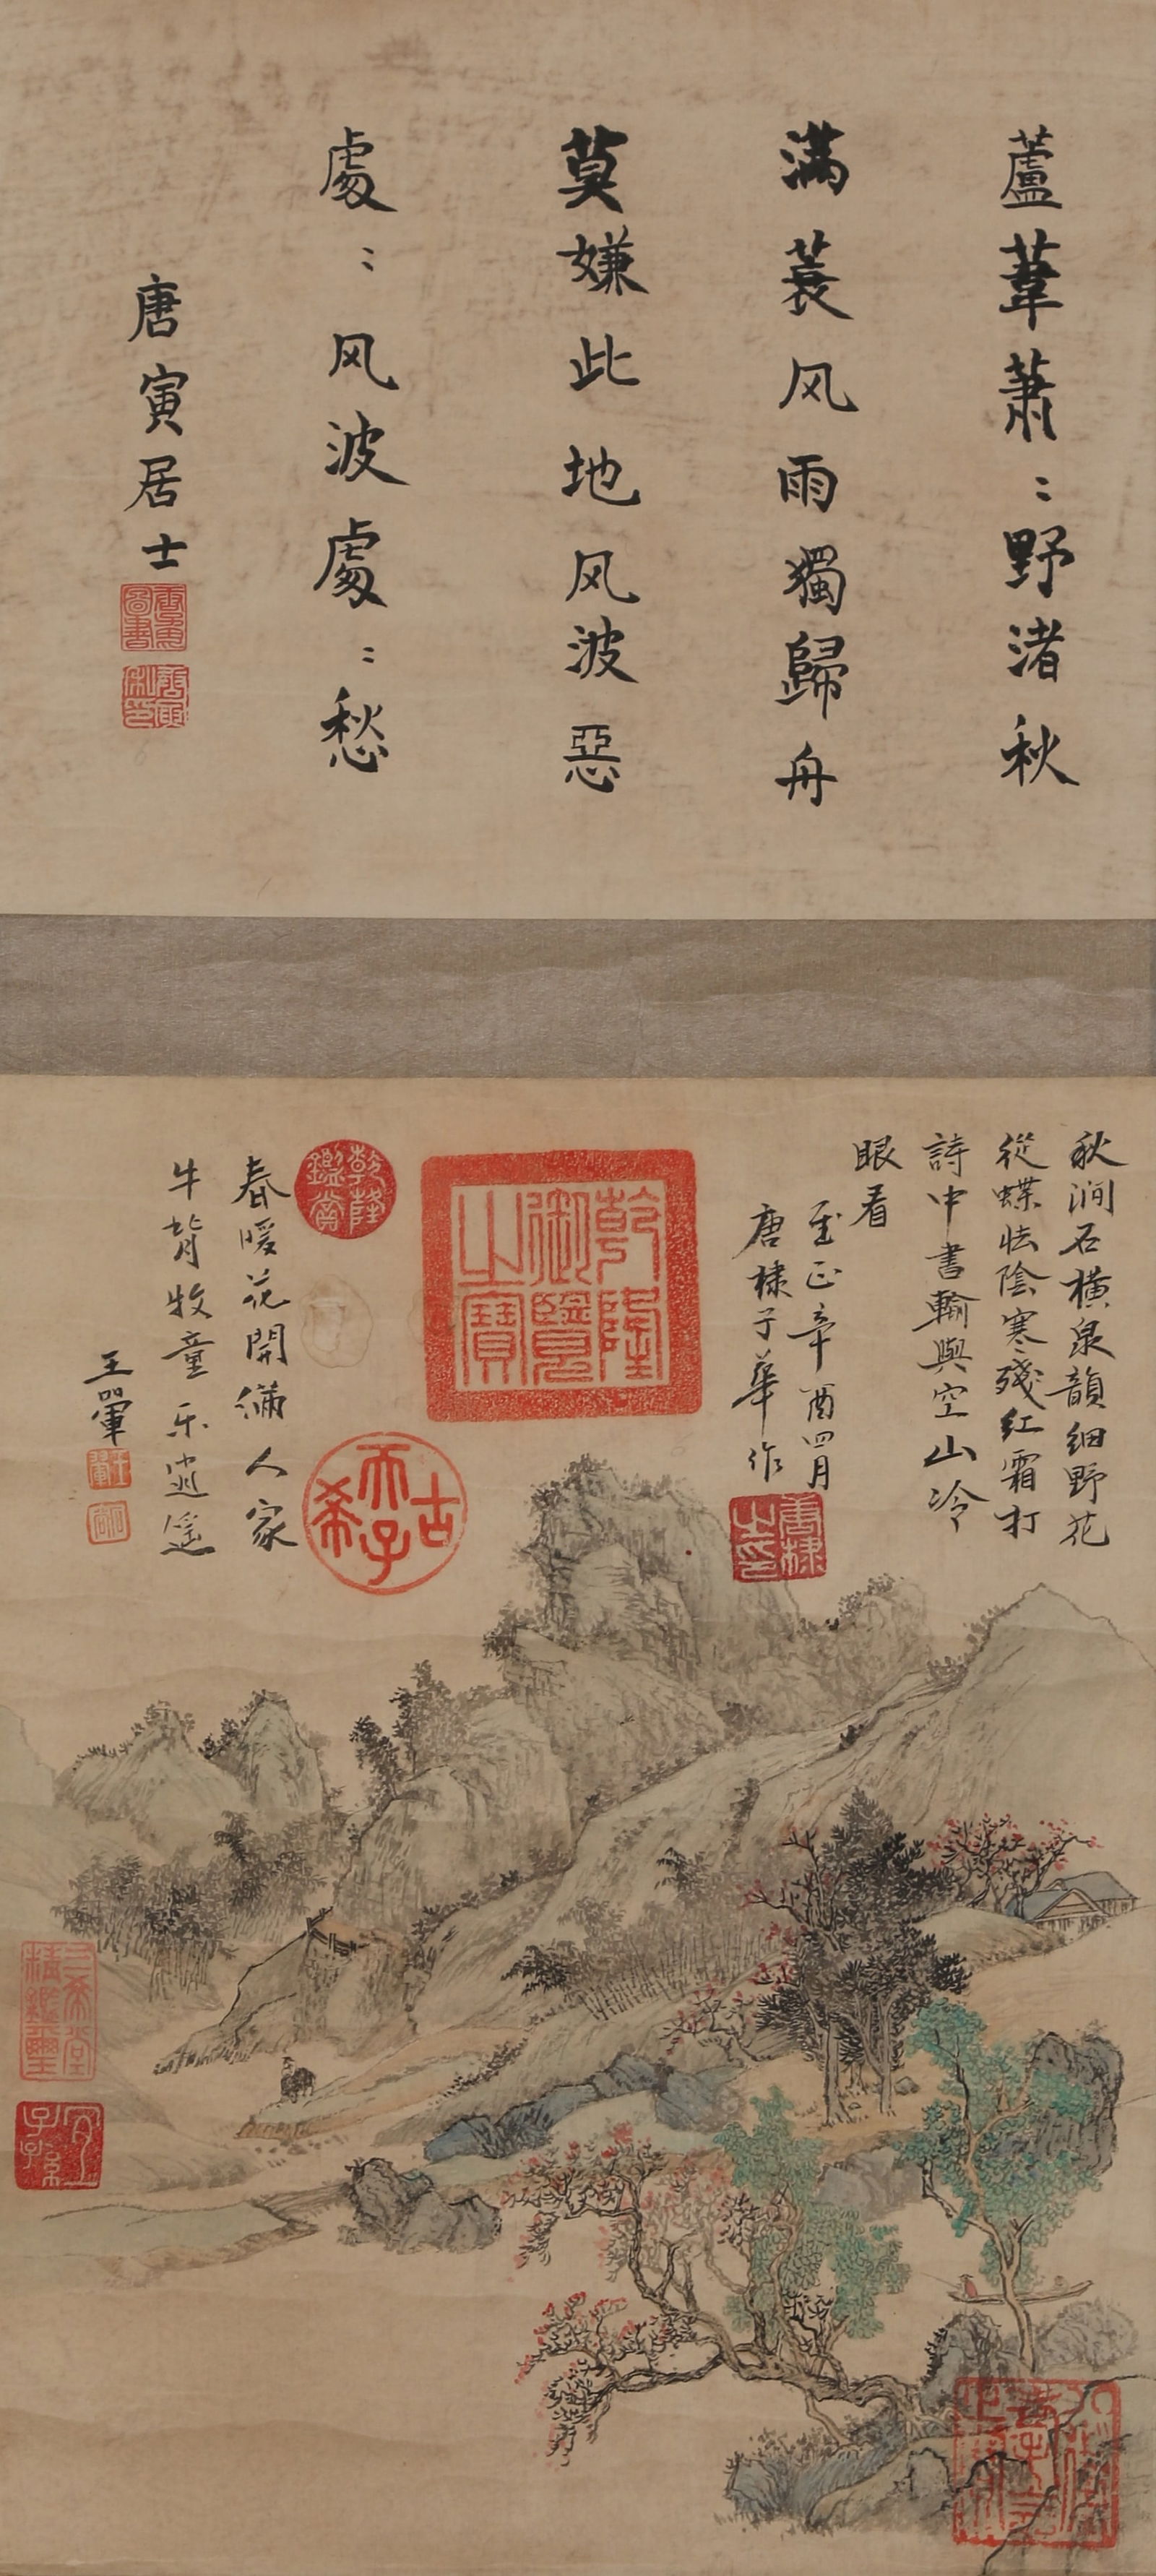 蘆葦蕭：野渚秋
满蓑风雨獨歸舟
莫嫌此地风波惡
處：风波處：愁
唐寅居士
秋澗石橫泉韻细野花
從蝶怯陰寒殘红霜打
詩中書輸與空山冷
眼看
至正辛酉四月
唐棣子華作
唐棣之印
乾隆御覽之寶
乾隆鑑賞
古希天子
春暖花開滿人家
牛背牧童乐逍遥
王翬
三希堂精鑑璽
宜子孫